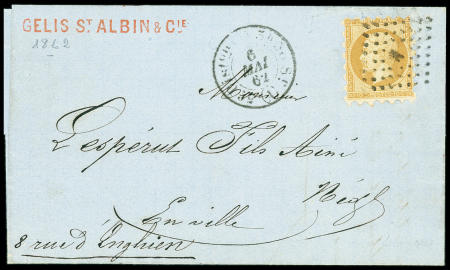 GELIS ST ALBIN & CIE
1862
6
MAI
62
Monsieur
Lespérut Fils Ainé
Négt
En ville
8 rue d'Enghien